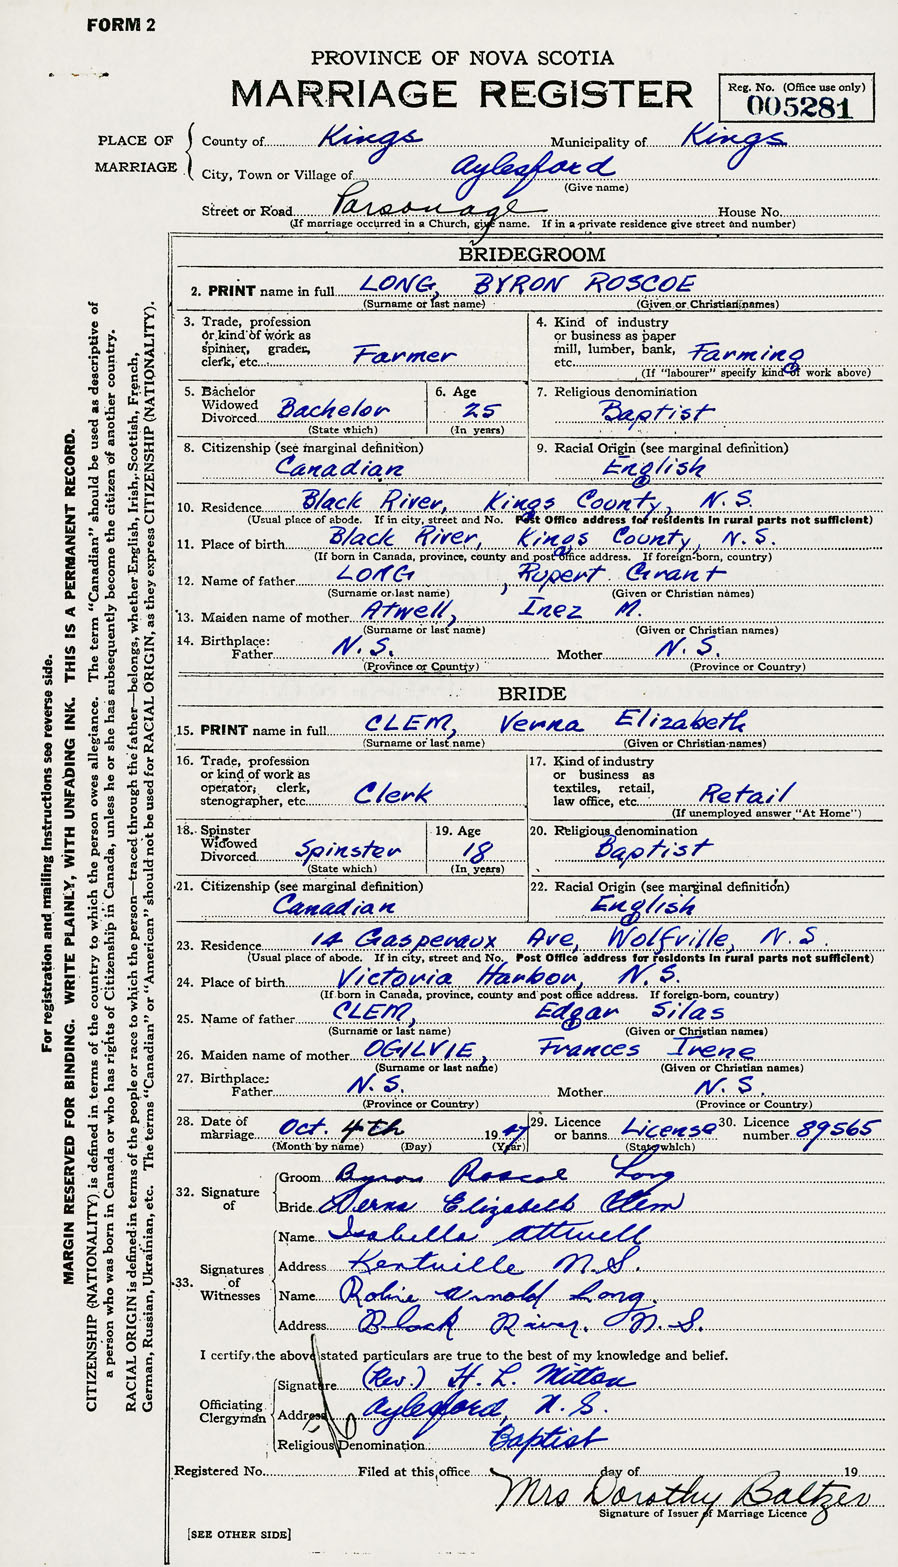 FORM 2
PROVINCE OF NOVA SCOTIA
MARRIAGE REGISTER
Reg. No. (Office use only)
005281
PLACE OF MARRIAGE
County of Kings Municipality of Kings
City, Town or Village of Aylesford
(Give name)
Street or Road Parsonage House No.
(If marriage occurred in a Church, give name. If in a private residence give street and number)
BRIDEGROOM
2. PRINT name in full LONG, BYRON ROSCOE
(Surname or last name) (Given or Christian names)
3. Trade, profession or kind of work as spinner, grader, clerk, etc. Farmer
4. Kind of industry or business as paper mill, lumber, bank, etc. Farming
(If "labourer" specify kind of work above)
5. Bachelor Widowed Divorced Bachelor
(State which)
6. Age 25
(In years)
7. Religious denomination
Baptist
8. Citizenship (see marginal definition)
Canadian
9. Racial Origin (see marginal definition)
English
10. Residence Black River, Kings County, N.S.
(Usual place of abode. If in city, street and No. Post Office address for residents in rural parts not sufficient)
11. Place of birth Black River, Kings County, N.S.
(If born in Canada, province, county and post office address. If foreign-born, country)
12. Name of father LONG, Rupert Grant
(Surname or last name) (Given or Christian names)
13. Maiden name of mother Atwell, Inez M.
(Surname or last name) (Given or Christian names)
14. Birthplace:
Father N.S. Mother N.S.
(Province or Country) (Province or Country)
BRIDE
15. PRINT name in full CLEM, Verna Elizabeth
(Surname or last name) (Given or Christian names)
16. Trade, profession or kind of work as operator, clerk, stenographer, etc. Clerk
17. Kind of industry or business as textiles, retail, law office, etc. Retail
(If unemployed answer "At Home")
18. Spinster Widowed Divorced Spinster
(State which)
19. Age 18
(In years)
20. Religious denomination
Baptist
21. Citizenship (see marginal definition)
Canadian
22. Racial Origin (see marginal definition)
English
23. Residence 14 Gaspereaux Ave, Wolfville, N.S.
(Usual place of abode. If in city, street and No. Post Office address for residents in rural parts not sufficient)
24. Place of birth Victoria Harbor, N.S.
(If born in Canada, province, county and post office address. If foreign-born, country)
25. Name of father CLEM, Edgar Silas
(Surname or last name) (Given or Christian names)
26. Maiden name of mother OGILVIE, Frances Irene
(Surname or last name) (Given or Christian names)
27. Birthplace:
Father N.S. Mother N.S.
(Province or Country) (Province or Country)
28. Date of marriage Oct. 4th 1947
(Month by name) (Day) (Year)
29. Licence or banns License
(State which)
30. Licence number 89565
32. Signature of
Groom Byron Roscoe Long
Bride Verna Elizabeth Clem
33. Signatures of Witnesses
Name Isabella Attwell
Address Kentville N.S.
Name Robie Arnold Long.
Address Black River, N.S.
I certify the above stated particulars are true to the best of my knowledge and belief.
Officiating Clergyman
Signature (Rev.) H. L. Mitton
Address Aylesford, N.S.
Religious Denomination Baptist
Registered No. Filed at this office day of 19
Mrs Dorothy Baltzer
Signature of Issuer of Marriage Licence
[SEE OTHER SIDE]
For registration and mailing instructions see reverse side.
MARGIN RESERVED FOR BINDING. WRITE PLAINLY, WITH UNFADING INK. THIS IS A PERMANENT RECORD.
CITIZENSHIP (NATIONALITY) is defined in terms of the country to which the person owes allegiance. The term "Canadian" should be used as descriptive of
a person who was born in Canada or who has rights of Citizenship in Canada, unless he or she has subsequently become the citizen of another country.
RACIAL ORIGIN is defined in terms of the people or race to which the person—traced through the father—belongs, whether English, Irish, Scottish, French,
German, Russian, Ukrainian, etc. The terms "Canadian" or "American" should not be used for RACIAL ORIGIN, as they express CITIZENSHIP (NATIONALITY).